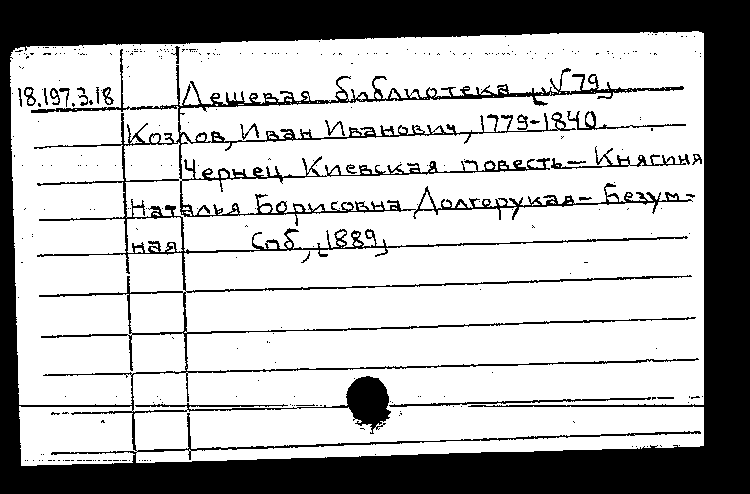 18.197.3.18 Дешевая библиотека [№79]
Козлов, Иван Иванович, 1779-1840.
Чернец. Киевская повесть — Княгиня
Наталья Борисовна Долгорукая — Безум-
ная. Спб, [1889]